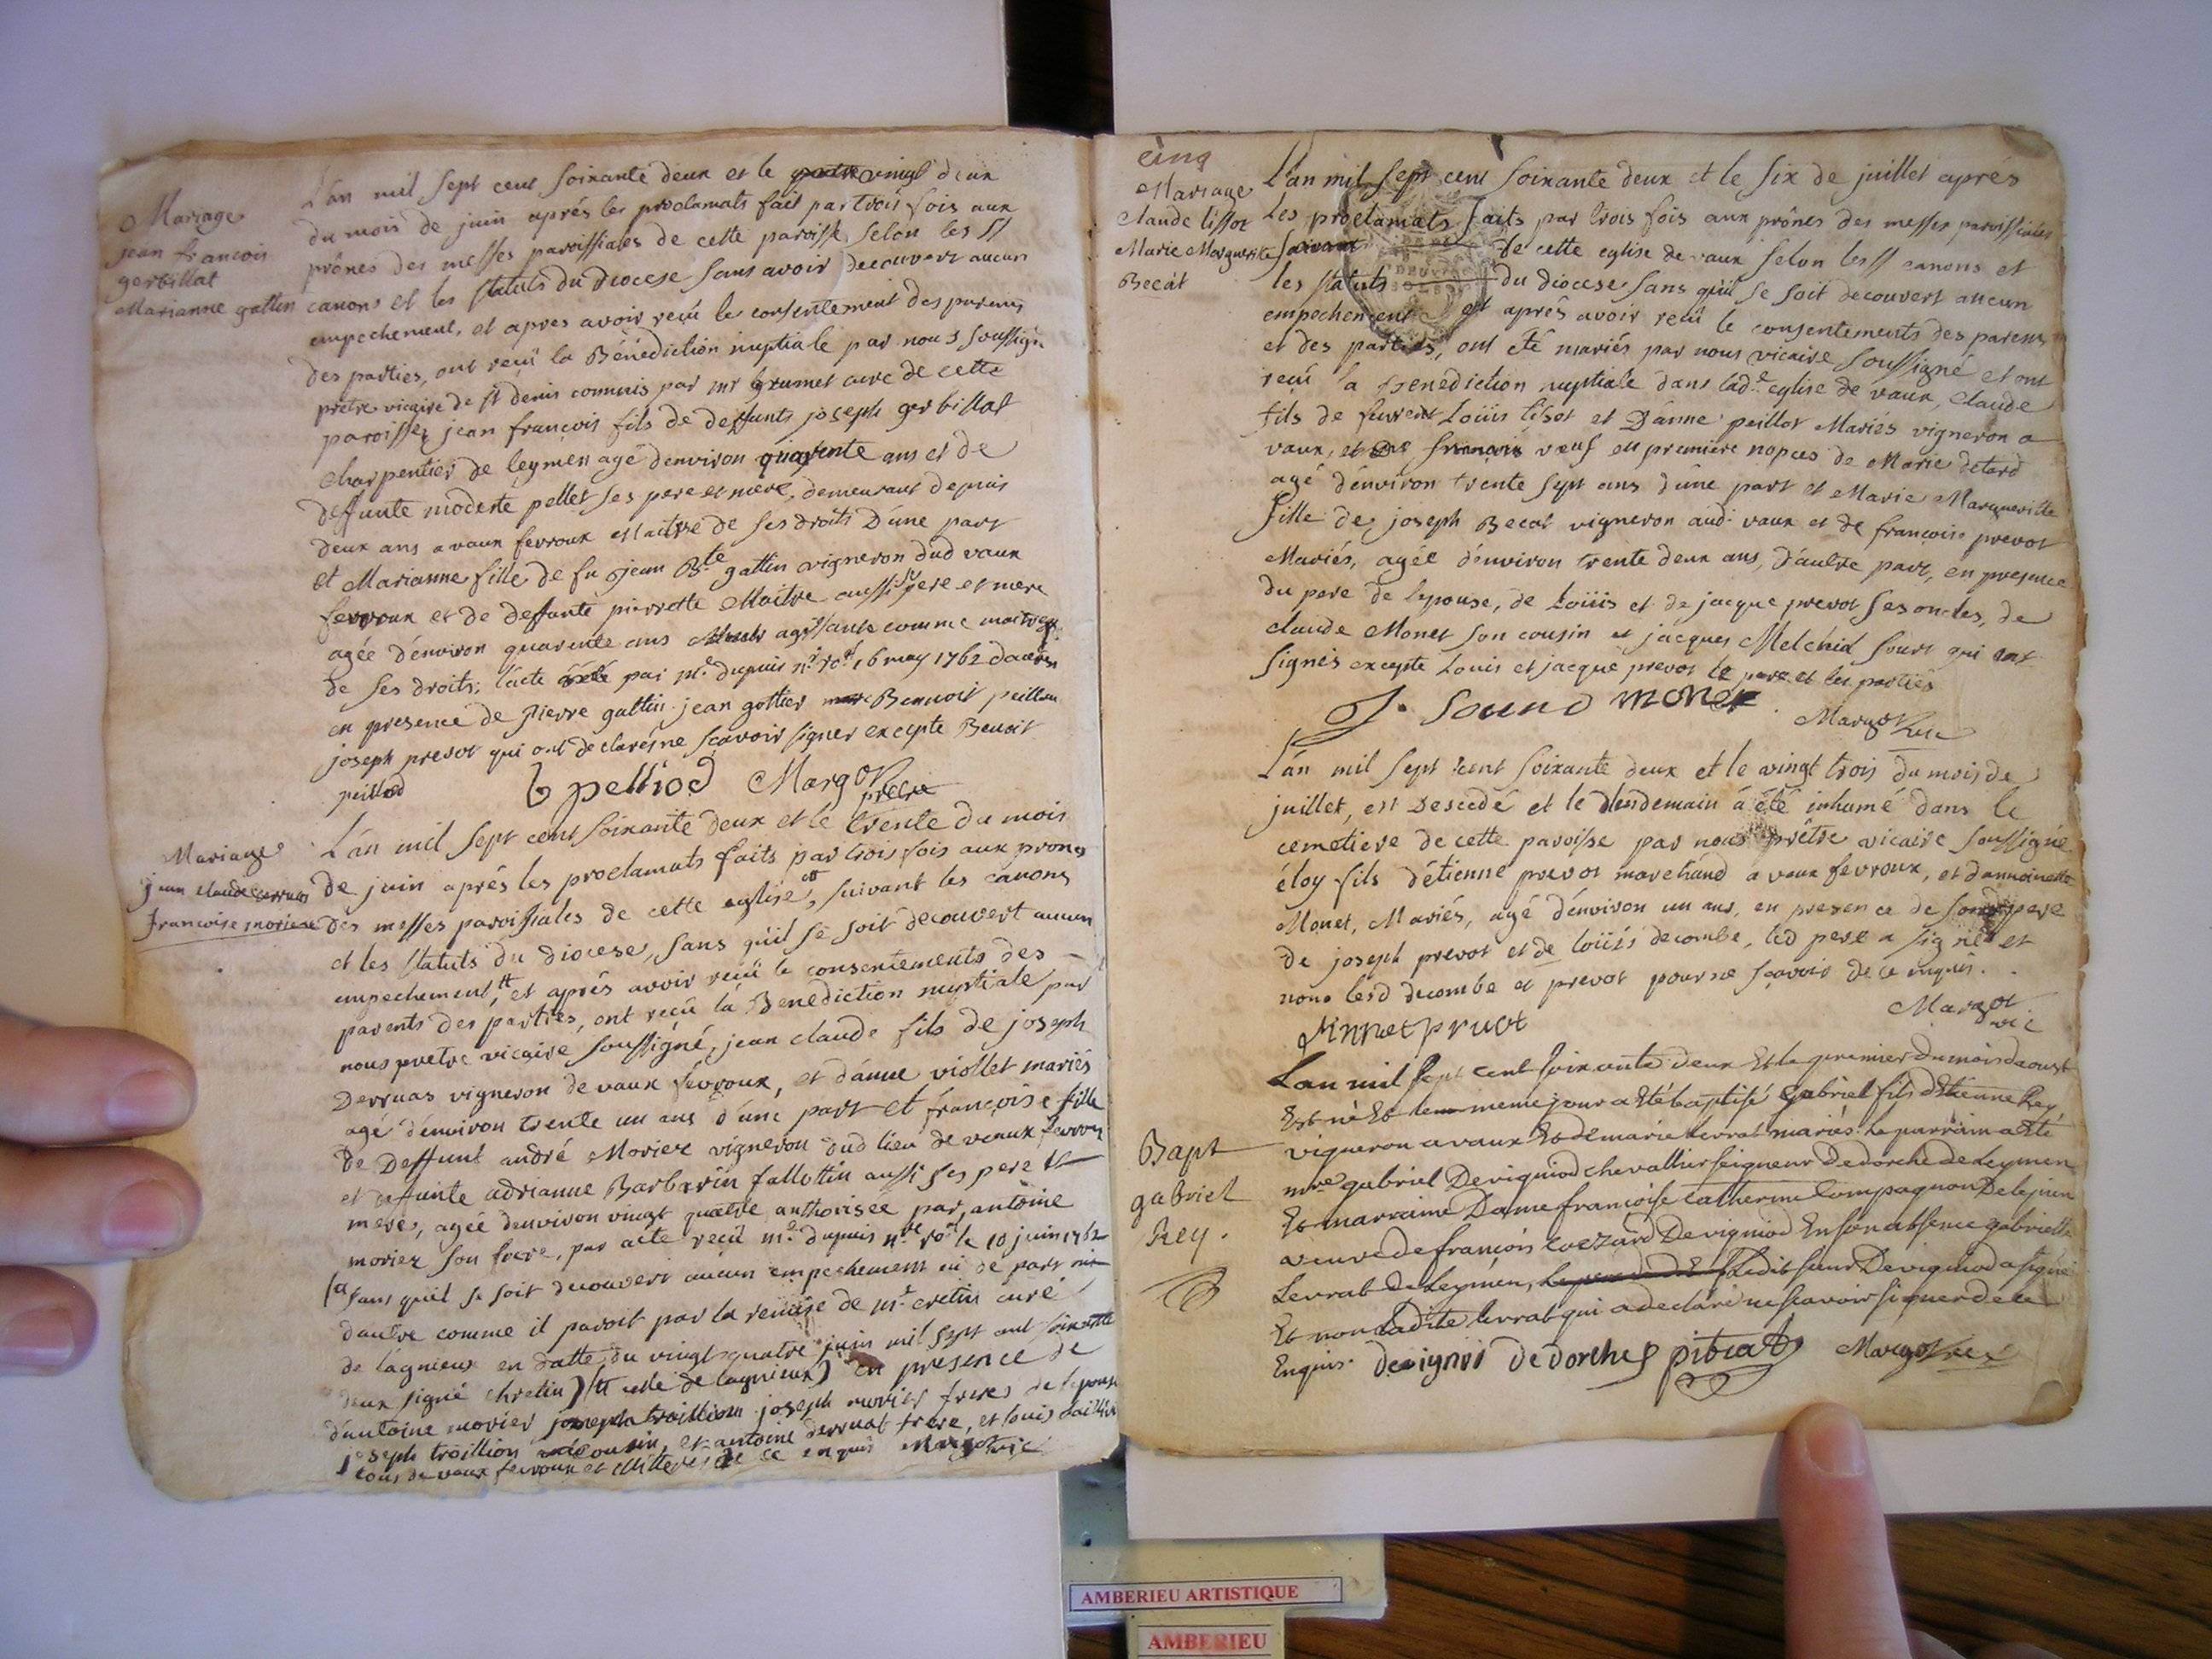 Mariage
jean francois
gerbillat
Marianne gattin
L'an mil sept cent soixante deux et le vingt deux
du mois de juin aprés les proclamats fait par trois fois aux
prônes des messes paroissiales de cette paroisse selon les st
canons et les statuts du diocese sans avoir decouvert aucun
empechement, et apres avoir reçû le consentement des parents
des parties, ont reçû la Bénédiction nuptiale par nous soussigné
pretre vicaire de st denis commis par mr grumet curé de cette
paroisse, jean françois fils de deffunts joseph gerbillat
charpentier de leymen agé denviron quarente ans et de
deffunte modeste pellet ses pere et mere, demeurant depuis
deux ans a vaux fevroux et maitre de ses droits D'une part
et Marianne fille de fu jean Bte gattin vigneron dud vaux
fevroux et de deffunte pierrette Maitre aussi ses pere et mere
agée d'environ quarente ans agissante comme maitresse
de ses droits; l'acte par me dupuis nre 16 may 1762
en presence de pierre gattin jean gottier Bennoit peillod
joseph prevot qui ont declaré ne scavoir signer excepte Benoit
peillod
b pelliod Margot
pretre
Mariage
jean claude derruas
francoise moriere
L'an mil sept cent soixante deux et le trente du mois
de juin aprés les proclamats faits par trois fois aux prones
des messes paroissiales de cette eglise, suivant les canons
et les statuts du diocese, sans qu'il se soit decouvert aucun
empechement, et aprés avoir reçû le consentements des
parents des parties, ont reçû la Benediction nuptiale par
nous pretre vicaire soussigné, jean claude fils de joseph
Derruas vigneron de vaux févroux, et d'anne viollet mariés
agé d'environ trente un ans d'une part et françoise fille
de Deffunt andré Moriez vigneron dud lieu de veaux fevroux
et deffunte adrianne Barbarin fallottin aussi ses pere et
mere, agée denviron vingt quatre authorisée par, antoine
moriez son frere, par acte reçû me dupuis nre le 10 juin 1762
(a sans quil se soit decouvert aucun empechement ni de part ni
dautre comme il paroit par la remise de mr cretin curé
de lagnieux en datte du vingt quatre juin mil sept cent soixante
deux signé chretin) et celle de lagnieux) en presence de
d'antoine morier joseph morier freres de lepouse
joseph troillion cousin, et antoine derruat frere, et louis
tous de vaux fevroux et illiterés de ce enquis Margot vic
cinq
Mariage
claude tissot
Marie Marguerite
Becat
L'an mil sept cent soixante deux et le six de juillet aprés
Les proclamats faits par trois fois aux prônes des messes paroissiales
de cette eglise de vaux selon les st canons et
les statuts du diocese sans qu'il se soit decouvert aucun
empechement et aprés avoir reçû le consentements des parens
et des parties, ont été mariés par nous vicaire soussigné et ont
reçû la benediction nuptiale dans lade eglise de vaux, claude
fils de Loüis tisot et D'anne peillot Mariés vigneron a
vaux, et veuf en premiere nopces de Marie detard
agé d'environ trente sept ans d'une part et Marie Marguerille
fille de joseph Becat vigneron aud. vaux et de françoise prevot
Mariés, agée d'environ trente deux ans, D'autre part, en presence
du pere de lepouse, de Loüis et de jacque prevot ses oncles, de
claude Monet son cousin et jacques Melchid qui ont
signés excepte Louis et jacque prevot le pere et les parties
J. Sound moner
Margot vic
L'an mil sept cent soixante deux et le vingt trois du mois de
juillet, est Descedé et le lendemain á été inhumé dans le
cemetiere de cette paroisse par nous prêtre vicaire soussigné
éloy fils d'étienne prevot marchand a vaux fevroux, et
Monet, Mariés, agé d'environ un ans, en presence de son pere
de joseph prevot et de loüis decombe, led pere a signé et
nono lesd decombe et prevot pour ne sçavoir de ce enquis.
Margot
vic
Lan mil sept cent soixante deux Et le premier du mois daoust
Est né Et le meme jour a Eté baptisé gabriel fils dEtienne Rey
vigneron a vaux Et de marie levrat mariés. Le parrain a Eté
Bapt
gabriel
Rey.
mre gabriel Devigniod chevallier seigneur De dorche de Leymen
Et marraine Dame francoise Catherine Compagnon De leymen
veuve de francois Devigniod En son absence gabrielle
Levrat de Leymen, Ledit sieur Devigniod a signé
Et non Ladite levrat qui a declaré ne scavoir signer de ce
Enquis. devignod de dorches pitrat Margot vic
AMBERIEU ARTISTIQUE
AMBERIEU